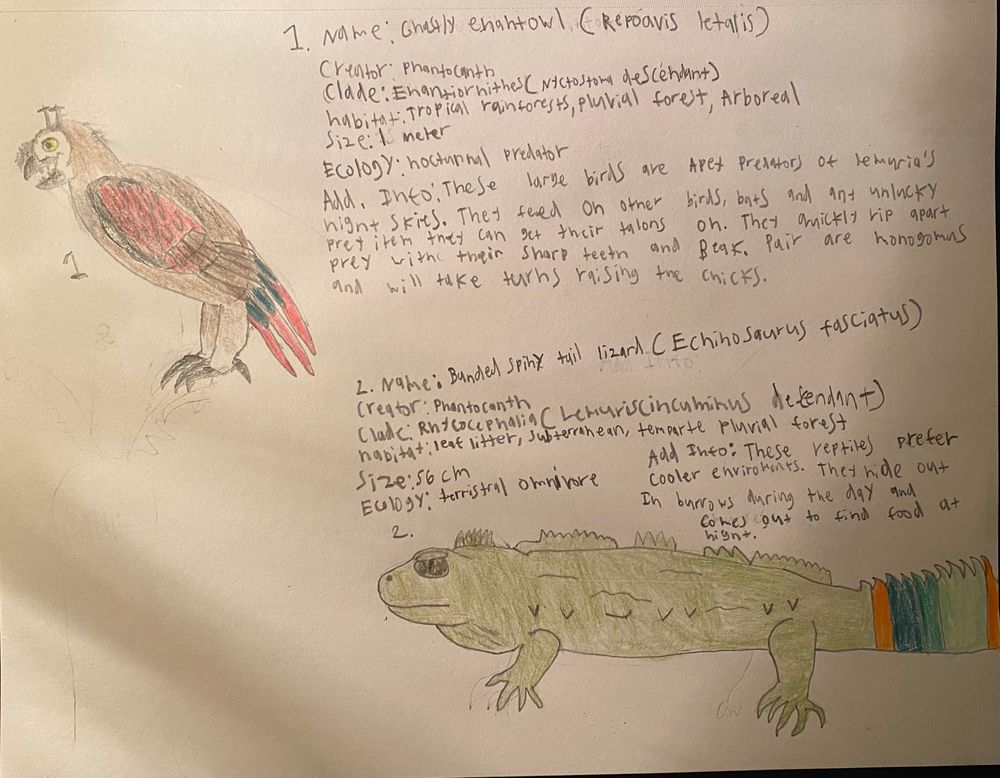 1. Name: Ghastly enantowl (Repoavis letalis)
Creator: Phantocanth
Clade: Enantiornithes (Nyctostoma descendant)
habitat: Tropical rainforests, pluvial forest, Arboreal
Size: 1 meter
Ecology: nocturnal predator
Add. Info: These large birds are Apex predators of Lemuria's
night skies. They feed on other birds, bats and any unlucky
prey item they can get their talons on. They quickly rip apart
prey with their sharp teeth and Beak. Pair are monogomus
and will take turns raising the chicks.
1
2. Name: Banded spiny tail lizard (Echinosaurus fasciatus)
Creator: Phantocanth
Clade: Rhycocephalia (Lemuriscincuminus defendant)
habitat: leaf litter, subterranean, temparte pluvial forest
Size: 56 cm
Ecology: terristral omnivore
Add Info: These reptiles prefer
cooler enviroments. They hide out
In burrows during the day and
comes out to find food at
night.
2.